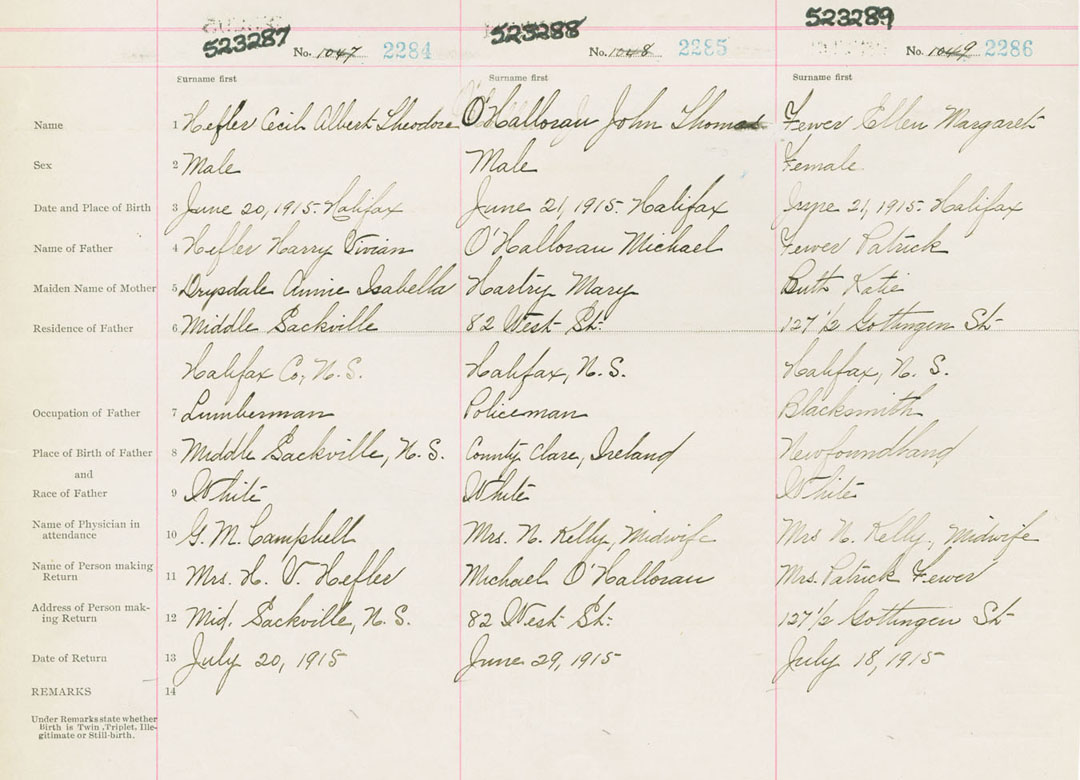 523287 523288 523289
No. 1047 2284 No. 1048 2285 No. 1049 2286
Surname first Surname first Surname first
Name 1 Hefler Cecil Albert Theodore O'Halloran John Thomas Fewer Ellen Margaret
Sex 2 Male Male Female
Date and Place of Birth 3 June 20, 1915. Halifax June 21, 1915. Halifax June 21, 1915. Halifax
Name of Father 4 Hefler Harry Vivian O'Halloran Michael Fewer Patrick
Maiden Name of Mother 5 Drysdale Annie Isabella Hartry Mary Butt Katie
Residence of Father 6 Middle Sackville 82 West St. 127 1/2 Gottingen St
Halifax Co, N.S. Halifax, N.S. Halifax, N.S.
Occupation of Father 7 Lumberman Policeman Blacksmith
Place of Birth of Father 8 Middle Sackville, N.S. County Clare, Ireland Newfoundland
and
Race of Father 9 White White White
Name of Physician in
attendance 10 G.M. Campbell Mrs. N. Kelly, Midwife Mrs N. Kelly, Midwife
Name of Person making
Return 11 Mrs. H. V. Hefler Michael O'Halloran Mrs. Patrick Fewer
Address of Person mak-
ing Return 12 Mid. Sackville, N.S. 82 West St. 127 1/2 Gottingen St
Date of Return 13 July 20, 1915 June 29, 1915 July 18, 1915
REMARKS 14
Under Remarks state whether
Birth is Twin, Triplet, Ille-
gitimate or Still-birth.